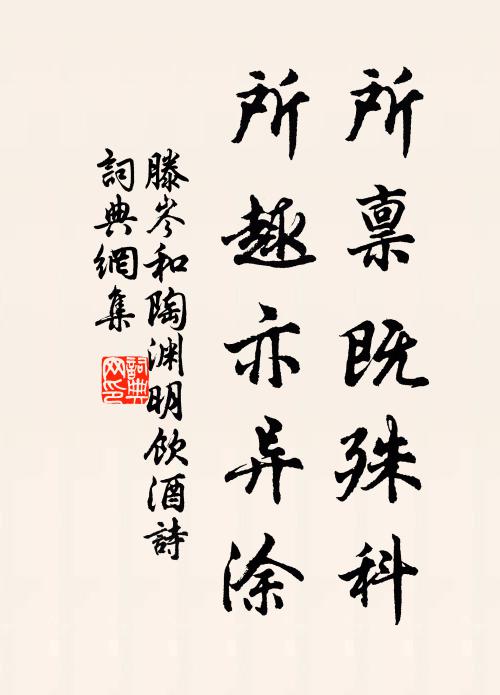 所禀既殊科
所趣亦异涂
滕岑和陶渊明饮酒詩
詞典網集
詞典
网印